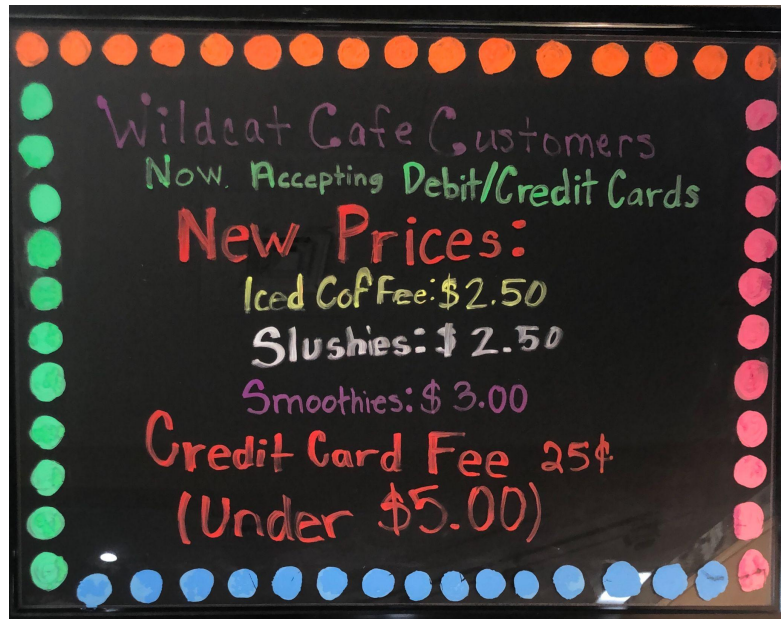 Wildcat Cafe Customers
Now. Accepting Debit/Credit Cards
New Prices:
Iced Coffee: $2.50
Slushies: $2.50
Smoothies: $3.00
Credit Card Fee 25¢
(Under $5.00)